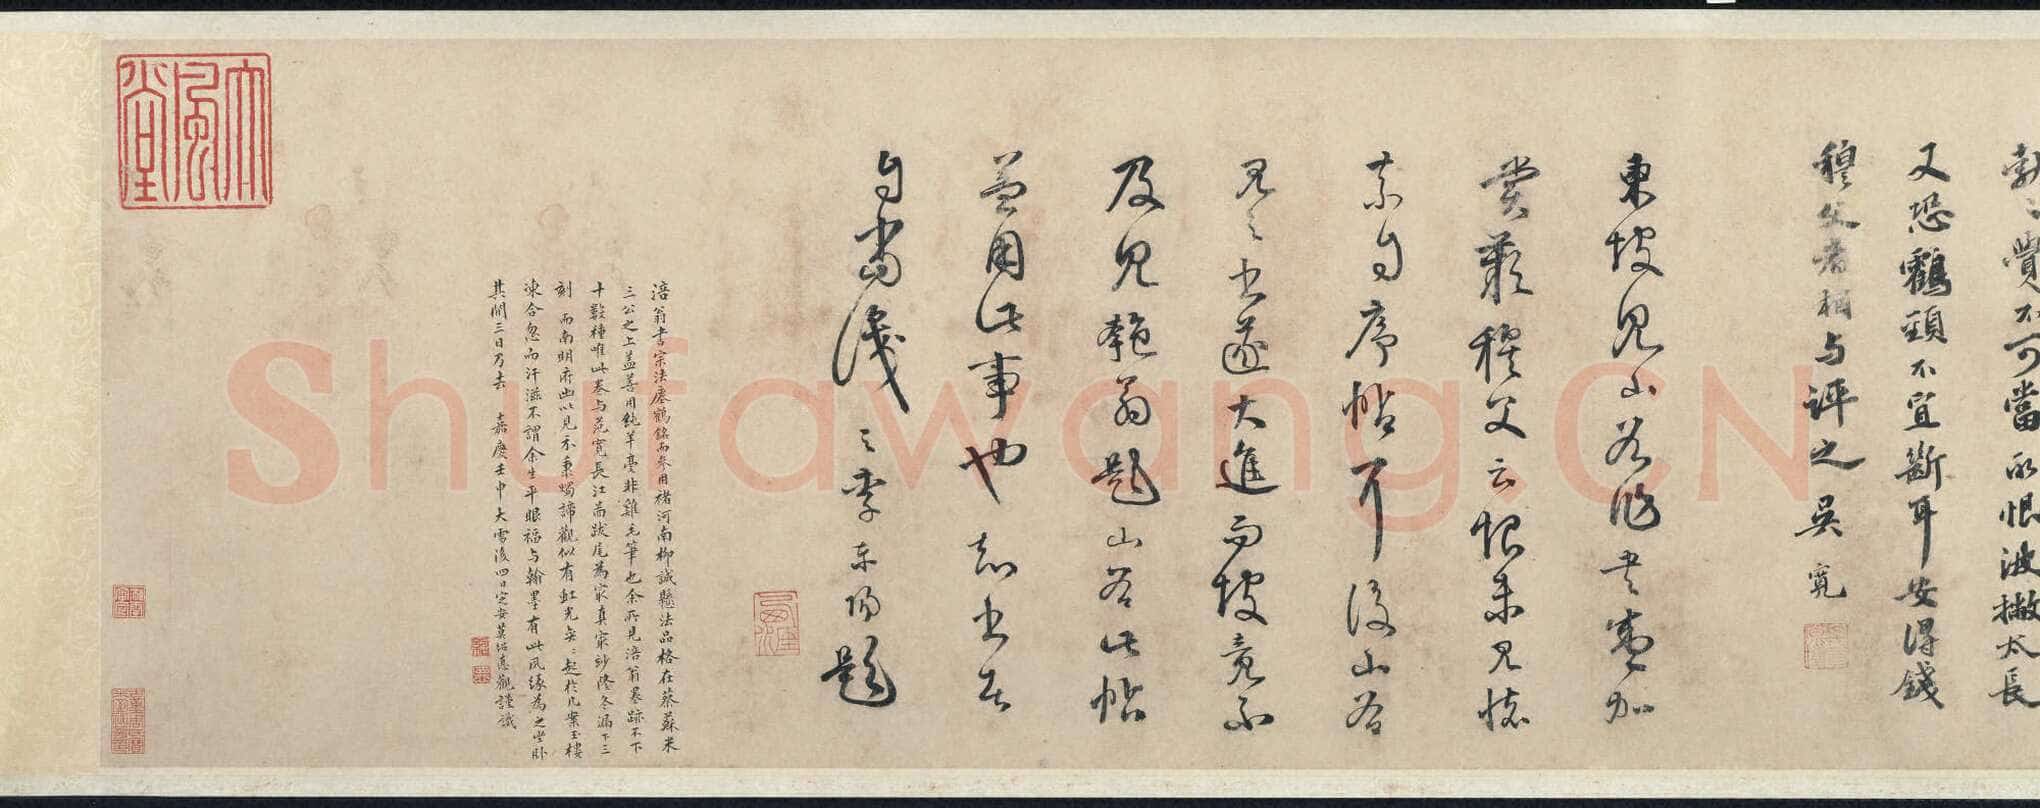 又恐鶴頸不宜斷耳安得錢
穆父者相与評之吳寬
東坡見山谷作書
賞歎穆父云恨未見懷
素自序帖耳後山谷
見之書遂大進而坡竟不
及見匏翁題山谷此帖
蓋用此事也
李東陽題
涪翁書宗法瘞鶴銘而參用褚河南柳誠懸法品格在蔡蘇米
三公之上蓋善用純羊毫非雞毛筆也余所見涪翁墨跡不下
十數種唯此卷与范寬長江啚跋尾為㝡真㝡妙隆冬漏下三
刻而南明府出以見示秉燭諦觀似有虹光起於几案玉樓
凍合忽而汗滋不謂余生平眼福与翰墨有此夙緣為之坐卧
其間三日乃去嘉慶壬申大雪後四日定安莫紹悳觀謹識
大風堂
Shufawang.CN